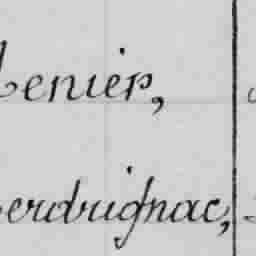 lenier,
erdrignac,